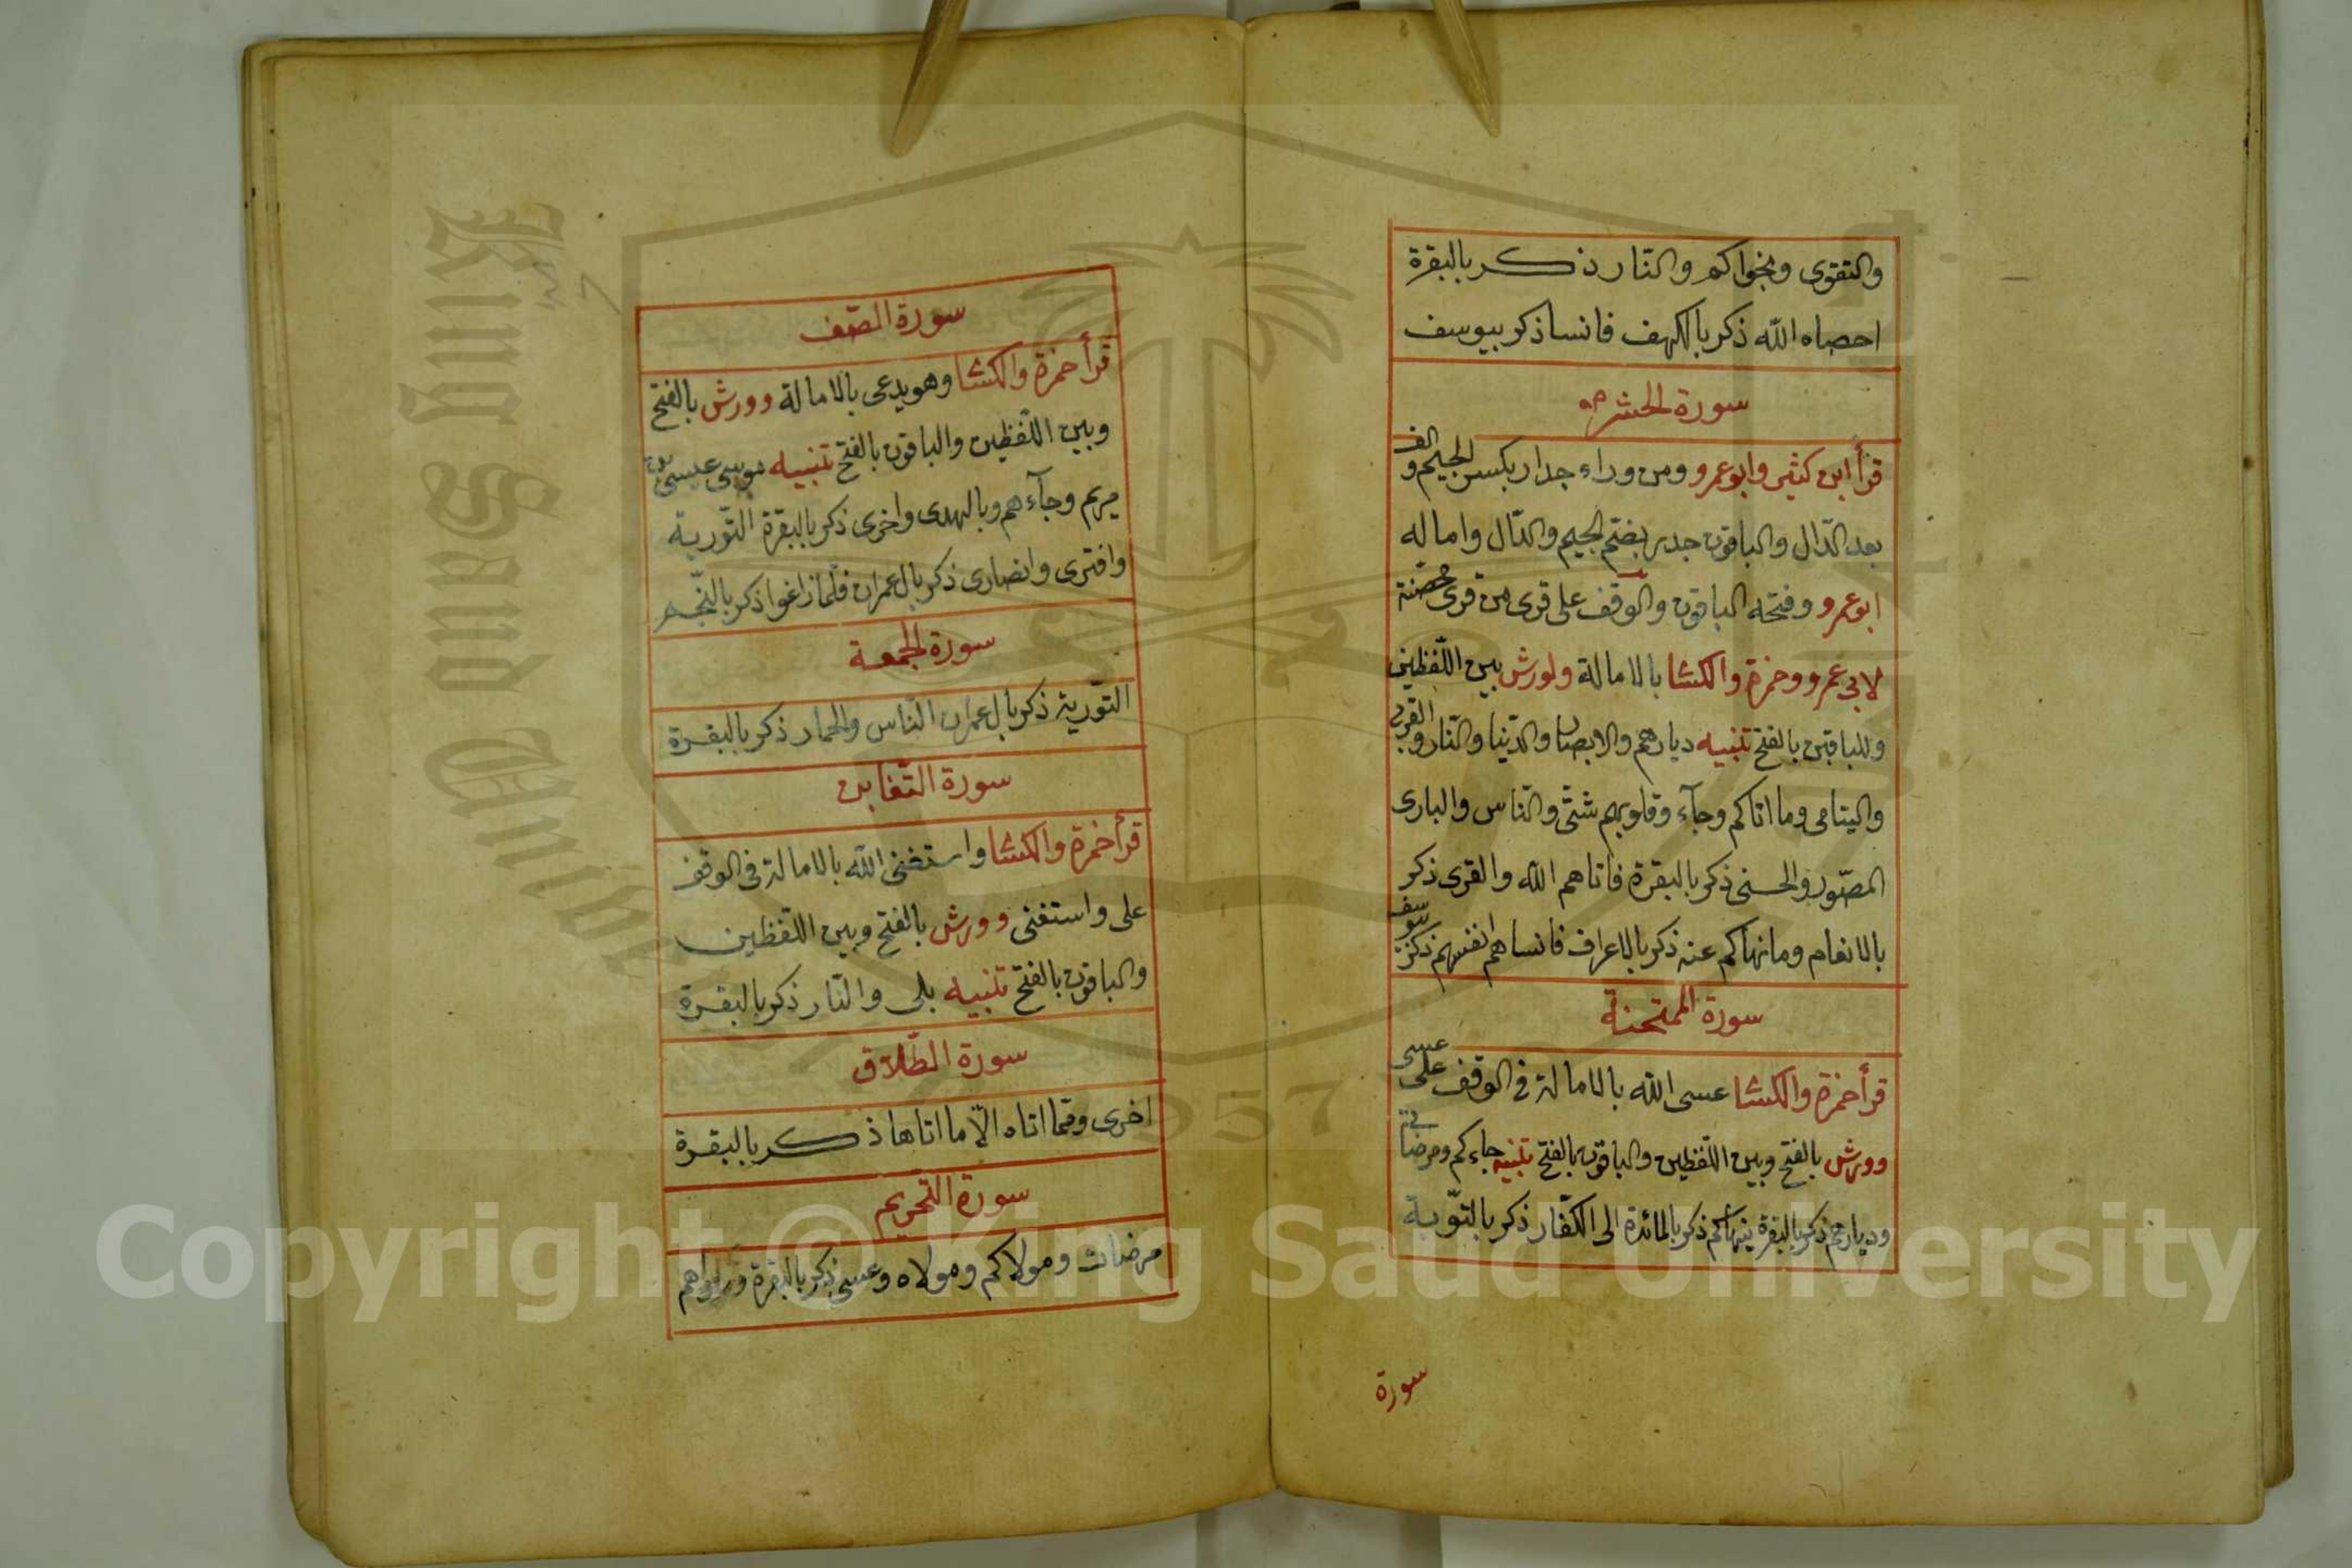 والتقوى ونجواكم والنّار ذكر بالبقرة
احصاه الله ذكر بالكهف فانسا ذكر بيوسف
سورة الحشر
قرأ ابن كثير وابوعمرو ومن وراء جدار بكسر الجيم والف
بعد الدّال والباقون جدر بضمّ الجيم والدّال واماله
ابوعمرو وفتحه الباقون والوقف على قرى من قرى محصّنة
لابي عمرو وحمزة والكسا بالامالة ولورش بين اللّفظين
وللباقين بالفتح تنبيه ديارهم والابصار والدّنيا والنّار والقربى
واليتامى وما اتاكم وجآء وقلوبهم شتّى والنّاس والبارى
المصّور والحسنى ذكر بالبقرة فاتاهم الله والقرى ذكر
بالانعام وما نهاكم عنه ذكر بالاعراف فانساهم انفسهم ذكر بيوسف
سورة الممتحنة
قرأ حمزة والكسا عسى الله بالامالة فى الوقف على عسى
وورش بالفتح وبين اللّفظين والباقون بالفتح تنبيه جاءكم ومرضاتى
ودياركم ذكر بالبقرة ينهاكم ذكر بالمائدة الى الكفّار ذكر بالتّوبة
سورة
سورة الصّف
قرأ حمزة والكسا وهو يدعى بالامالة وورش بالفتح
وبين اللّفظين والباقون بالفتح تنبيه موسى عيسى بن
مريم وجآءهم وبالهدى واخرى ذكر بالبقرة التّورية
وافترى وانصارى ذكر بال عمران فلّما زاغوا ذكر بالنّجم
سورة الجمعة
التّورية ذكر بال عمران النّاس والحمار ذكر بالبقرة
سورة التّغابن
قرأ حمزة والكسا واستغنى الله بالامالة فى الوقف
على واستغنى وورش بالفتح وبين اللّفظين
والباقون بالفتح تنبيه بلى والنّار ذكر بالبقرة
سورة الطّلاق
اخرى وممّا اتاه الّا ما اتاها ذكر بالبقرة
سورة التّحريم
مرضات ومولاكم ومولاه وعسى ذكر بالبقرة
Copyright © King Saud University
King Saud University
1957